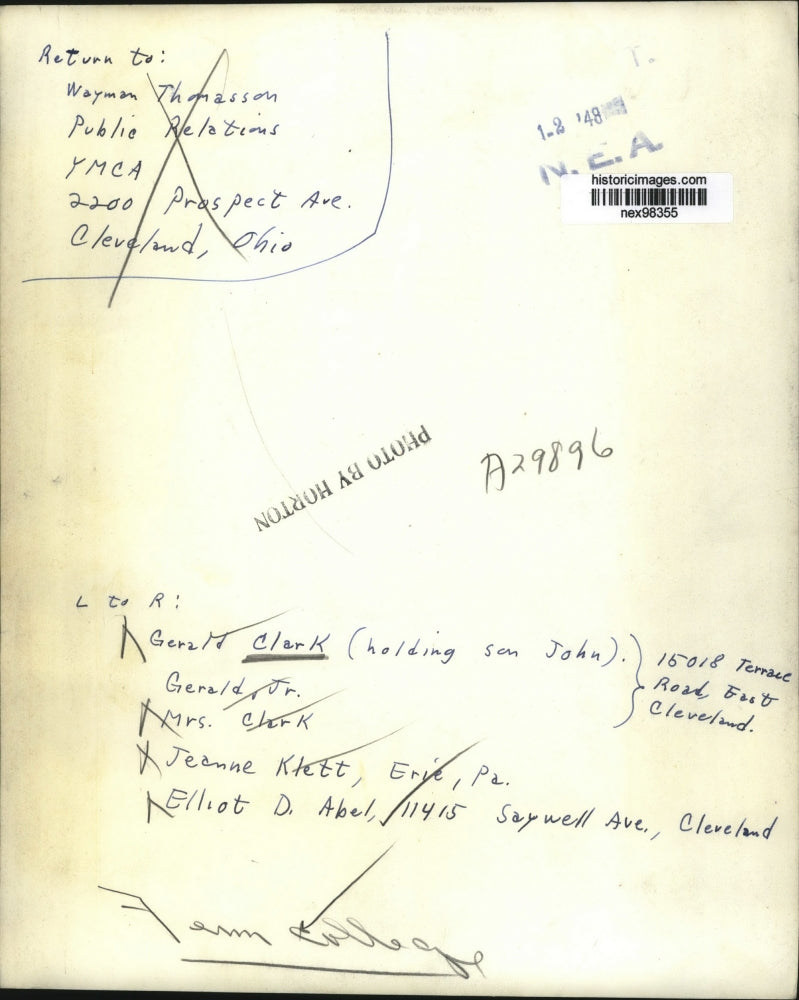 Return to:
Wayman Thomasson
Public Relations
YMCA
2200 Prospect Ave.
Cleveland, Ohio
T.
1-2 '48
N.E.A.
historicimages.com
nex98355
PHOTO BY HORTON
A29896
L to R:
Gerald Clark (holding son John).
Gerald, Jr.
Mrs. Clark
15018 Terrace
Road, East
Cleveland.
Jeanne Klett, Erie, Pa.
Elliot D. Abel, 11415 Saywell Ave., Cleveland
Fenn College